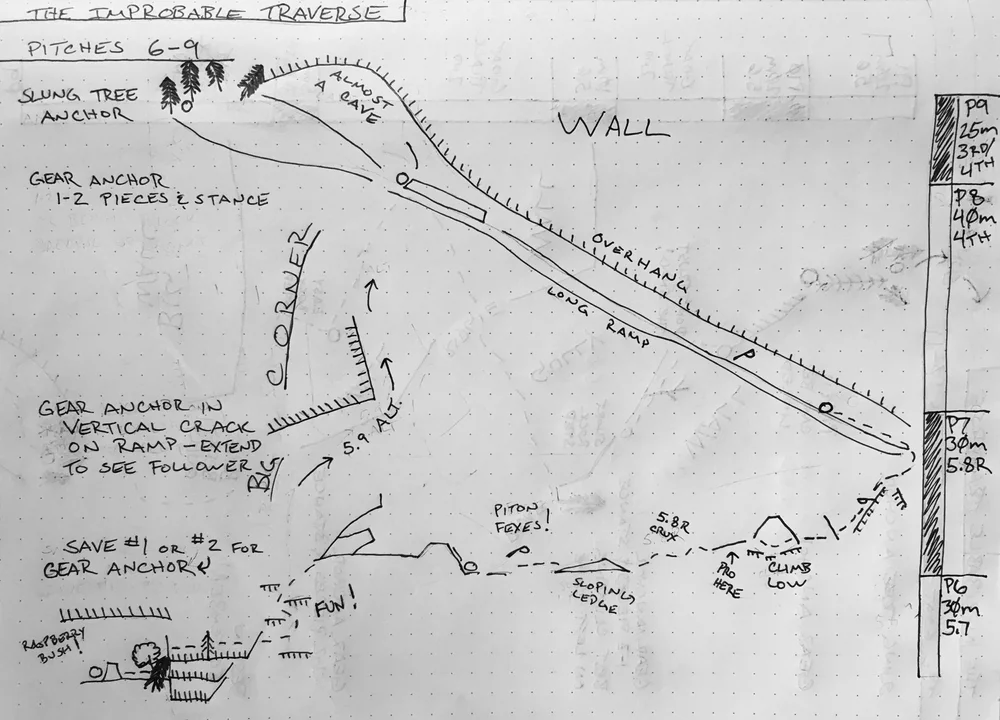 THE IMPROBABLE TRAVERSE
PITCHES 6-9
SLUNG TREE
ANCHOR
ALMOST
A CAVE
WALL
GEAR ANCHOR
1-2 PIECES & STANCE
OVERHANG
LONG RAMP
CORNER
GEAR ANCHOR IN
VERTICAL CRACK
ON RAMP - EXTEND
TO SEE FOLLOWER
5.9 ALT.
PITON
FEXES!
5.8R
CRUX
PRO
HERE
CLIMB
LOW
SLOPING
LEDGE
SAVE #1 OR #2 FOR
GEAR ANCHOR
FUN!
RASPBERRY
BUSH!
P9
25m
3RD/
4TH
P8
40m
4TH
P7
30m
5.8R
P6
30m
5.7